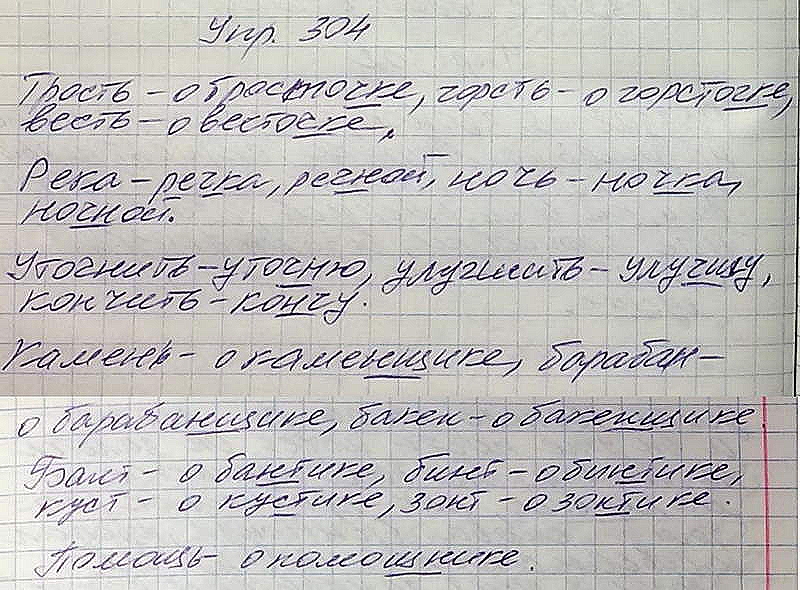 Упр. 304
Трость - о тросточке, горсть - о горсточке,
весть - о весточке,.
Река - речка, речной, ночь - ночка,
ночной.
Уточнить - уточню, улучшить - улучшу,
кончить - кончу.
Камень - о каменщике, барабан -
о барабанщике, бакен - о бакенщике
Бант - о бантике, бинт - о бинтике,
куст - о кустике, зонт - о зонтике.
Помощь - о помощнике.